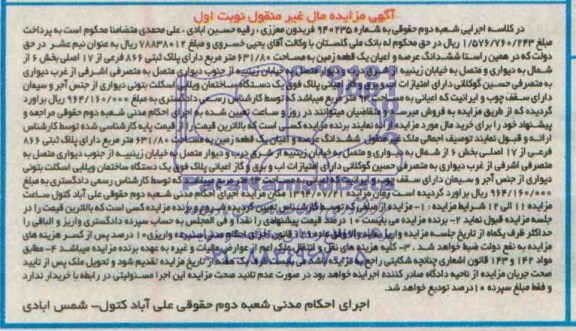 آگهی مزایده مال غیر منقول نوبت اول
در کلاسه اجرایی شعبه دوم حقوقی به شماره ۹۴۰۲۳۵ فریدون معززی، رقیه حسین ابادی، علی محمدی متضامنا محکوم است به پرداخت
مبلغ ۱/۵۷۶/۷۶۰/۲۴۳ ریال در حق محکوم له بانک ملی گلستان با وکالت آقای یحیی خسروی و مبلغ ۷۸۸۳۸۰۱۲ ریال به عنوان نیم عشر در حق
دولت که در همین راستا ششدانگ عرصه و اعیان یک قطعه زمین به مساحت ۶۳۱/۸۰ متر مربع دارای پلاک ثبتی ۸۶۶ فرعی از ۱۷ اصلی بخش ۶ از
شمال به دیواری و متصل به خیابان زینبیه از شرق درب و دیوار متصل به خیابان زینبیه از جنوب دیواری متصل به متصرفی اشرفی از غرب دیواری
به متصرفی حسین گوکلانی دارای امتیازات اب و برق و گاز اعیانی پلاک فوق یک دستگاه ساختمان ویلایی اسکلت بتونی دیواری از جنس آجر و سیمان
دارای سقف چوب و ایرانیت که اعیانی به مساحت ۹۲ متر مربع میباشد که توسط کارشناس رسمی دادگستری به مبلغ ۹۶۴/۱۶۰/۰۰۰ ریال براورد
گردیده که از طریق مزایده به فروش میرسد متقاضیان میتوانند در روز و ساعت تعیین شده به اجرای احکام مدنی شعبه دوم حقوقی مراجعه و
پیشنهاد خود را برای خرید مال مورد مزایده ارائه نمایند برنده مزایده کسی است که بالاترین قیمت را از قیمت پایه کارشناسی شده توسط کارشناس
ارائه و قبول نمایند توصیف اجمالی ملک ششدانگ عرصه و اعیان یک قطعه زمین به مساحت ۶۳۱/۸۰ متر مربع دارای پلاک ثبتی ۸۶۶
فرعی از ۱۷ اصلی بخش ۶ از شمال به دیواری و متصل به خیابان زینبیه از شرق درب و دیواری متصل به خیابان زینبیه از جنوب دیواری متصل به
متصرفی اشرفی از غرب دیواری به متصرفی حسین گوکلانی دارای امتیازات اب و برق و گاز اعیانی پلاک فوق یک دستگاه ساختمان ویلایی اسکلت بتونی
دیواری از جنس آجر و سیمان دارای که توسط کارشناس رسمی دادگستری به مبلغ
۹۶۴/۱۶۰/۰۰۰ ریال براورد گردیده است اجرای احکام مدنی شعبه دوم حقوقی علی آباد کتول ساعت
مزایده ۱۱ الی ۱۲ شرایط مزایده: ۱- مزایده از مبلغی که توسط کارشناس تعیین گردیده شروع و برنده مزایده کسی است که بالاترین قیمت را در
جلسه مزایده قبول نماید ۲- برنده مزایده می بایست ۱۰ درصد قیمت پیشنهادی را نقدا فی المجلس به حساب سپرده دادگستری واریز و الباقی را
حداکثر ظرف یکماه از تاریخ جلسه مزایده قانون اجرای احکام مدنی سپرده واریزی ۱۰ درصد پس از کسر هزینه های
مزایده به نفع دولت ضبط خواهد شد. ۳- کلیه هزینه های نقل و انتقال ملک اعم از عوارض مالیات و غیره به عهده برنده مزایده میباشد ۴- مطابق
مواد ۱۴۲ و ۱۴۳ قانون اشعاری چنانچه شکایتی راجع از تاریخ مزایده تقدیم شود و تحویل ملک پس از تایید
صحت جریان مزایده از ناحیه دادگاه صادر کننده اجراییه خواهد بود در صورت عدم تائید صحت مزایده این اجرا مسئولیتی در رابطه با خریدار ندارد
و فقط مبلغ سپرده ۱۰ درصد تودیع خواهد شد.
اجرای احکام مدنی شعبه دوم حقوقی علی آباد کتول- شمس ابادی